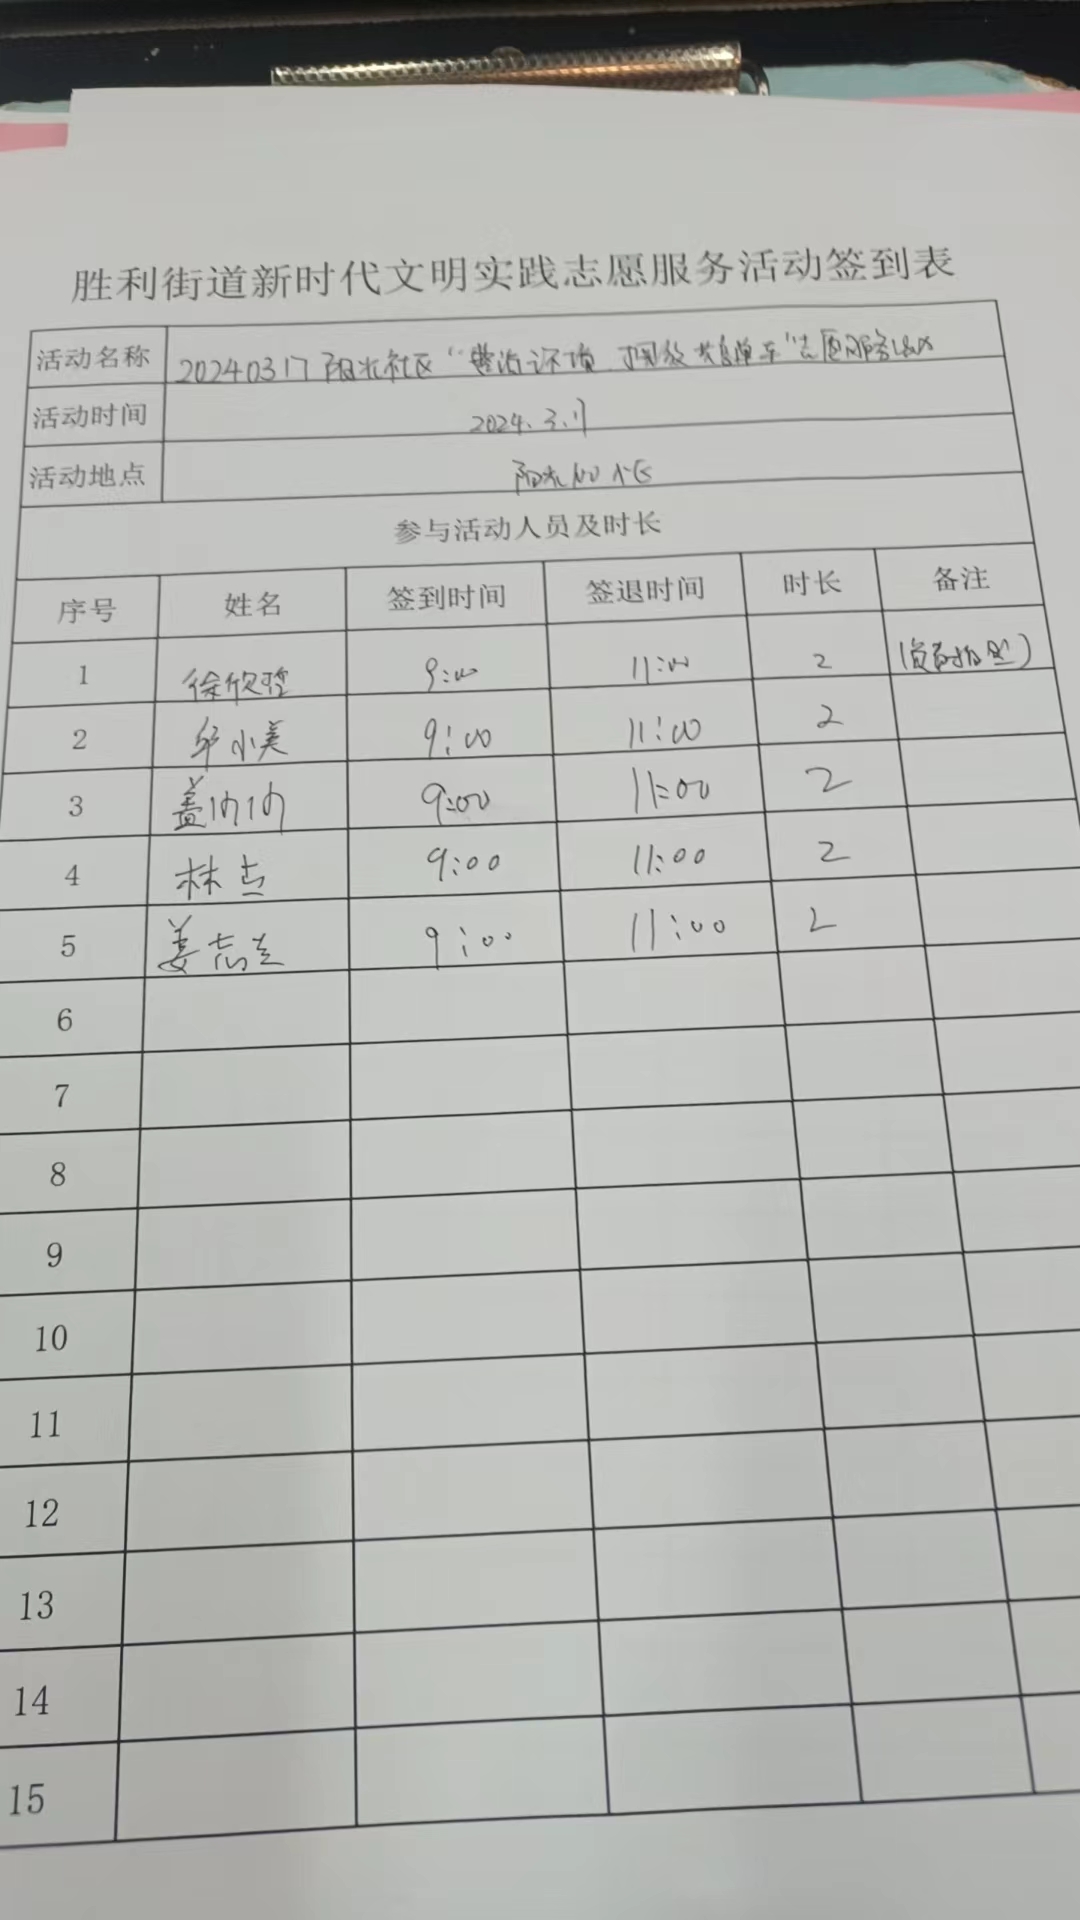 胜利街道新时代文明实践志愿服务活动签到表
活动名称 20240317 阳光社区“整治环境 摆放共享单车”志愿服务活动
活动时间 2024.3.17
活动地点 阳光100小区
参与活动人员及时长
序号 姓名 签到时间 签退时间 时长 备注
1 徐欣 9:00 11:00 2
2 邹小美 9:00 11:00 2
3 盖内内 9:00 11:00 2
4 林 9:00 11:00 2
5 姜志 9:00 11:00 2
6
7
8
9
10
11
12
13
14
15